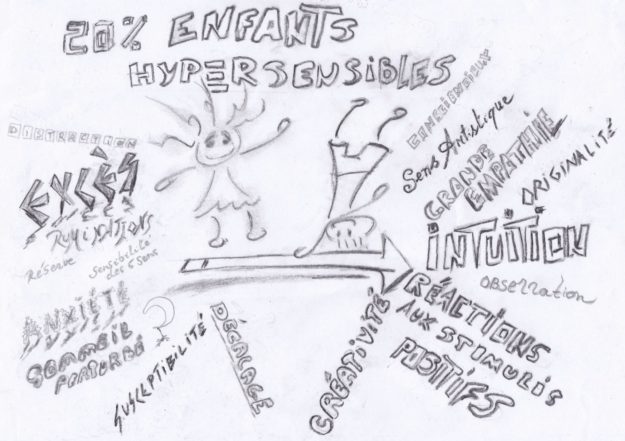 20% ENFANTS
HYPERSENSIBLES
DISTRACTION
EXCÈS
RUMINATIONS
Réserve
Sensibilité
des 5 sens
ANXIÉTÉ
SOMMEIL
PERTURBÉ
?
SUSCEPTIBILITÉ
DÉCALAGE
CRÉATIVITÉ
CONSCIENCIEUX
Sens Artistique
GRANDE
EMPATHIE
ORIGINALITÉ
INTUITION
OBSERVATION
RÉACTIONS
AUX STIMULIS
POSITIFS